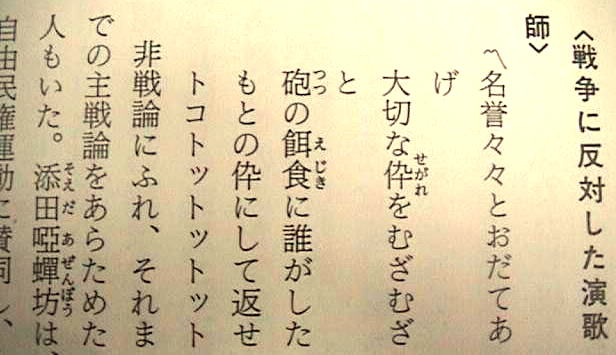 〈戦争に反対した演歌
師〉
〽名誉々々とおだてあ
げ
大切な伜をむざむざ
と
砲の餌食に誰がした
もとの伜にして返せ
トコトットットット
非戦論にふれ、それま
での主戦論をあらためた
人もいた。添田啞蟬坊は、
自由民権運動に賛同し、